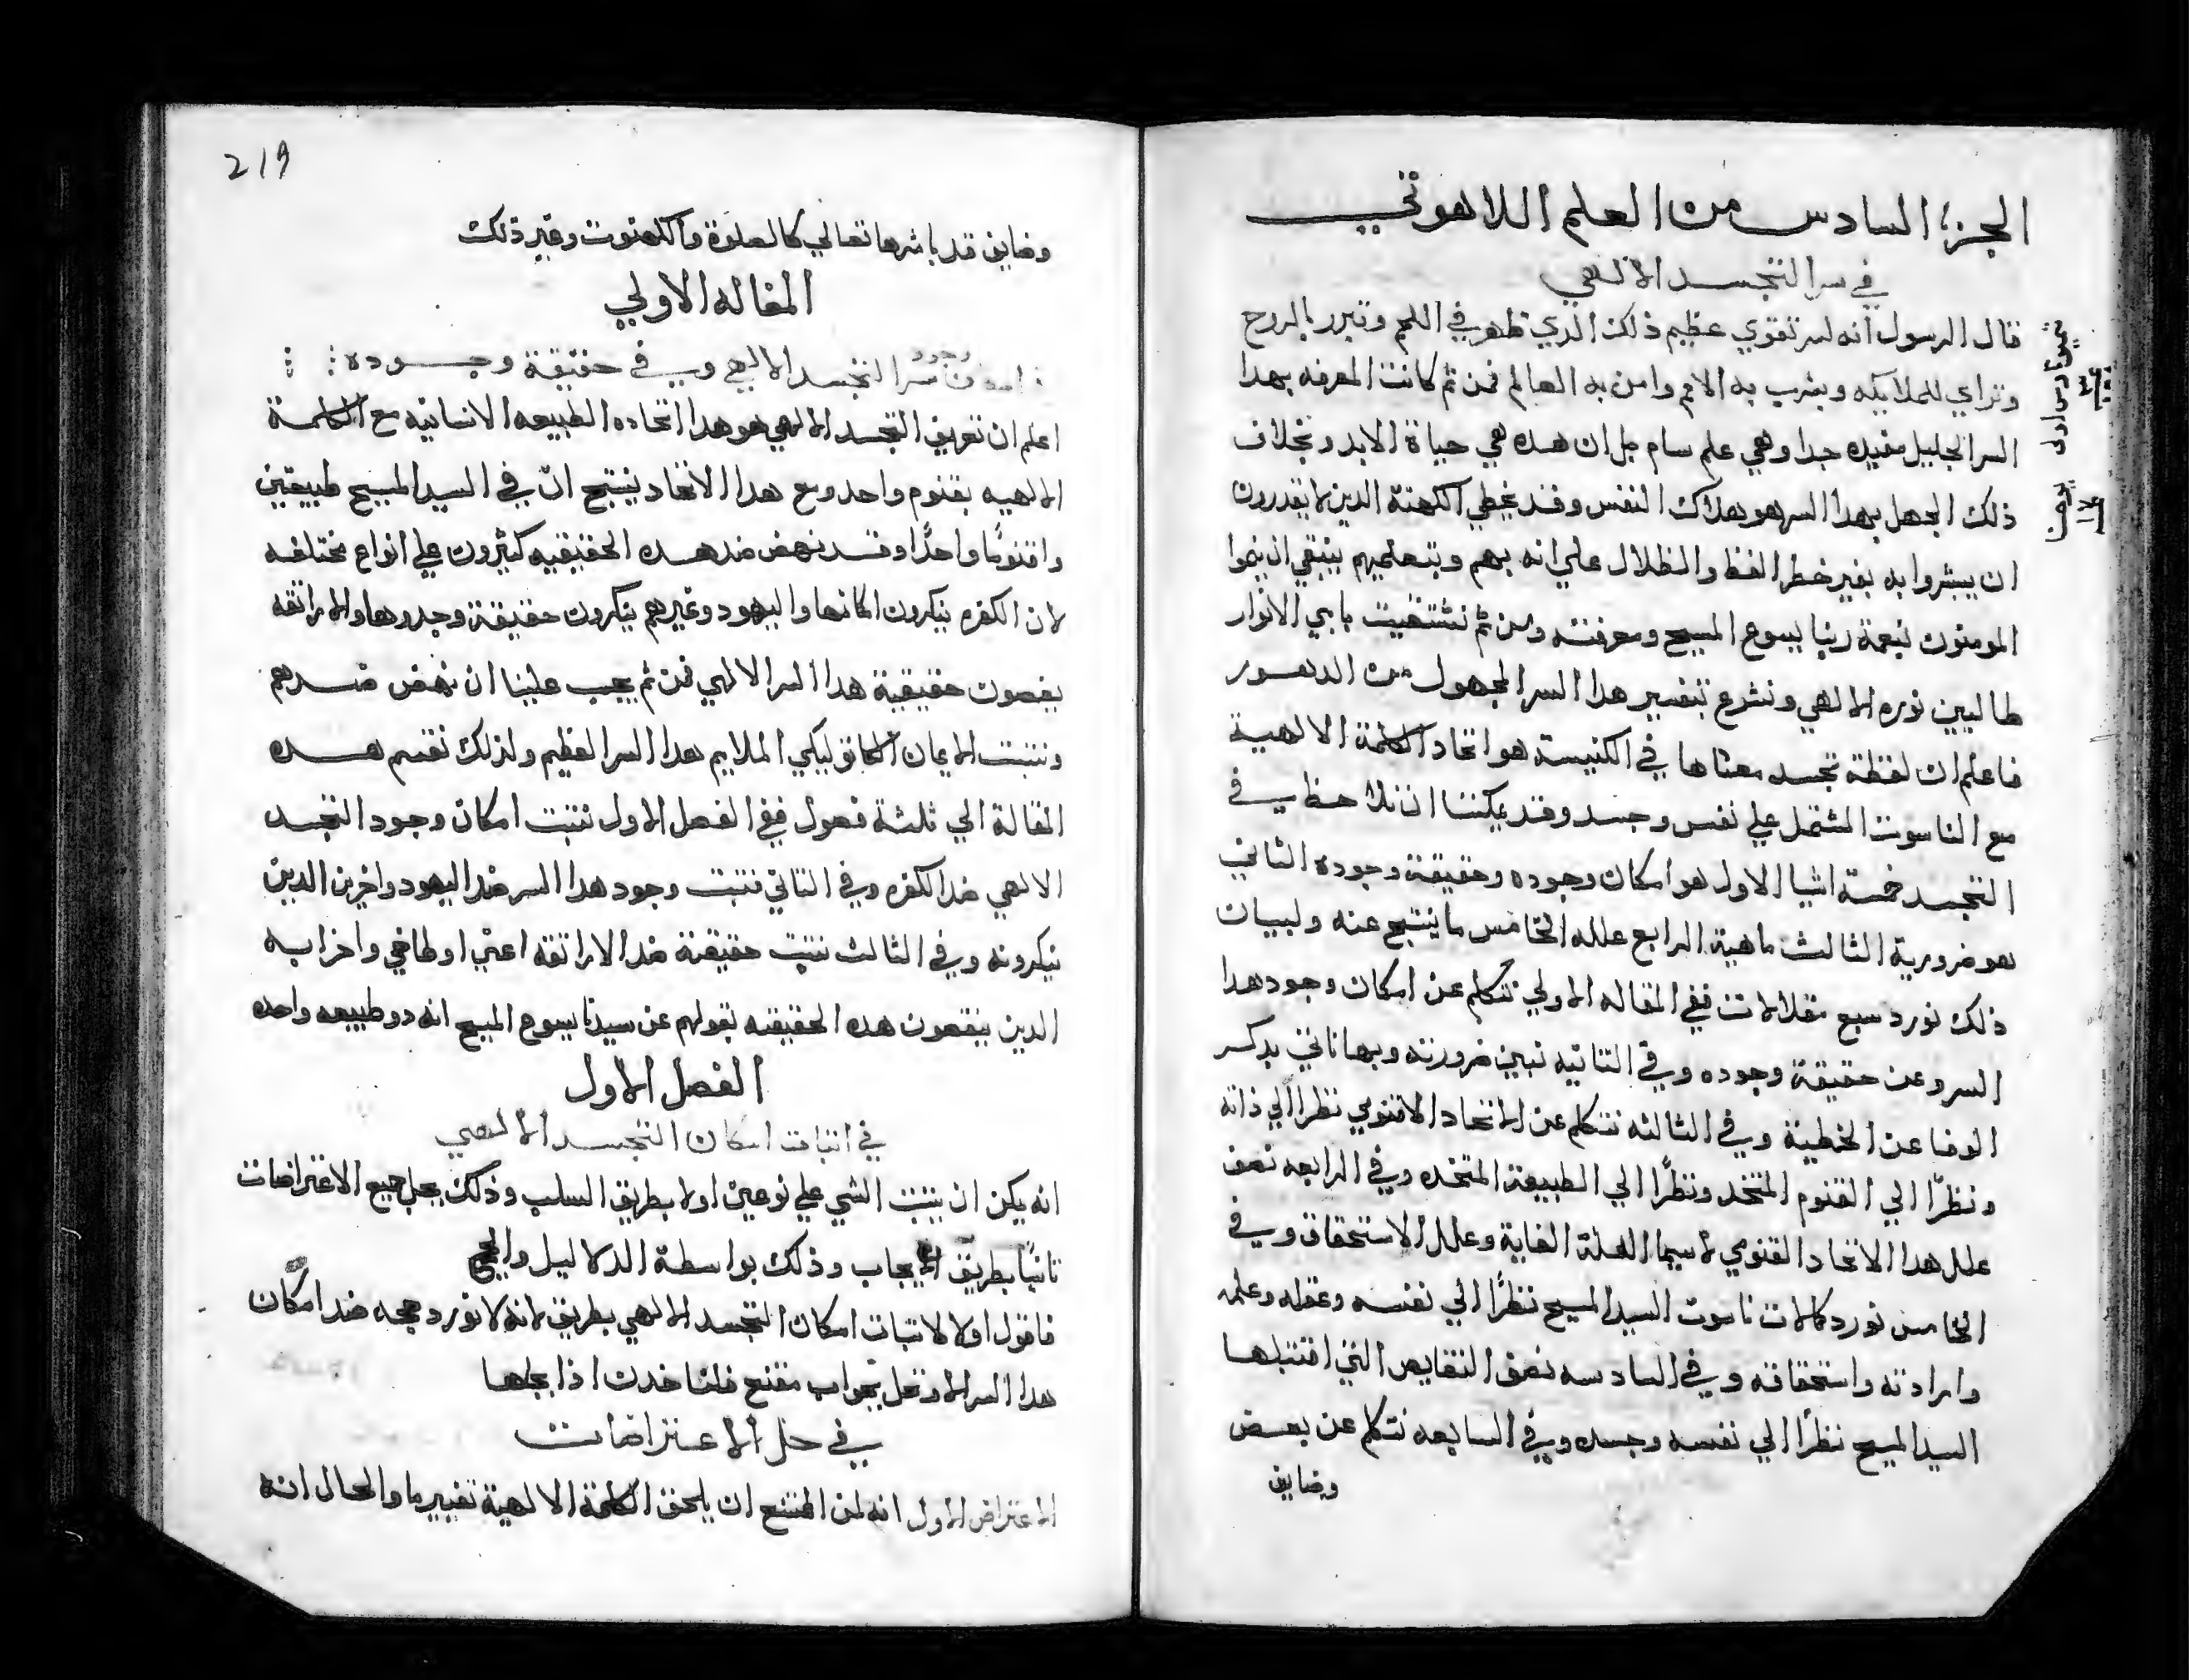 الجزء السادس من العلم اللاهوتي
في سر التجسد الالهي
قال الرسول انه لسر تقوي عظيم ذلك الذي ظهر في اللحم وتبرر بالروح
وتراي للملايكه وبشرب به الامم وامن به العالم فمن ثم كانت المعرفه بهدا
السر الجليل مفيده جدا وهي علم سام بل ان هده هي حياة الابد وبخلاف
ذلك الجهل بهدا السر هو هلاك النفس وقد يخطي الكهنة الدين لا يقدرون
ان يبشروا به بغير خطر الغط والظلال علي انه بهم وبتعليمهم ينبغي ان ينموا
المومنون بنعمة ربنا يسوع المسيح ومعرفته ومن ثم نستغيت بابي الانوار
طالبين نوره الالهي ونشرع بتفسير هدا السر المجهول من الدهور
فاعلم ان لفظة تجسد معناها في الكنيسة هو اتحاد الكلمة الالهية
مع الناسوت المشتمل علي نفس وجسد وقد يمكننا ان نلاحظ في
التجسد خمسة اشيا الاول هو امكان وجوده وحقيقة وجوده الثاني
هو ضرورية الثالث ماهية الرابع علله الخامس ما ينتج عنه ولبيان
ذلك نورد سبع مقالات ففي المقاله الاولي نتكلم عن امكان وجود هدا
السر وعن حقيقة وجوده وفي التانيه نبين ضرورته وبها ناتي بدكر
الوفا عن الخطية وفي الثالثه نتكلم عن الاتحاد الاقنومي نظرًا الي ذاته
ونظرًا الي القنوم المتخد ونظرًا الي الطبيعة المتخده وفي الرابعه نصف
علل هدا الاتحاد القنومي لاسيما العلة الغاية وعلل الاستحقاق وفي
الخامس نورد كمالات ناسوت السيد المسيح نظرًا الي نفسه وعقله وعلمه
وارادته واستحقاقه وفي السادسه نصف النقايص التي اقتبلها
السيد المسيح نظرًا الي نفسه وجسده وفي السابعه نتكلم عن بعض
وضايف
219
وضايف قد باشرها تعالي كالصلوة والكهنوت وغير ذلك
المقاله الاولي
وجود
سر التجسد الالهي وفي حقيقة وجوده
اعلم ان تعريف التجسد الالهي هو هدا اتحاده الطبيعه الانسانيه مع الكلمة
الالهيه بقنوم واحد ومع هدا الاتحاد ينتج ان في السيد المسيح طبيعتين
واقنومًا واحدًا وقد نهض ضد هده الحقيقيه كثيرون علي انواع مختلفه
لان الكفره ينكرون امكانها واليهود وغيرهم ينكرون حقيقة وجودها والاراتقه
يغصون حقيقية هدا السر الالهي فمن ثم يجب علينا ان نهض ضدهم
ونتبت الايمان الكاتوليكي الملايم هدا السر العظيم ولذلك نقسم هده
المقالة الي ثلثة فصول ففي الفصل الاول نتبت امكان وجود التجسد
الالهي ضد الكفره وفي التاني نتبت وجود هدا السر ضد اليهود واخرين الدين
ينكرونه وفي الثالث نتبت حقيقته ضد الاراتقه اعني اوطاخي واحزابه
الدين ينقصون هده الحقيقيه بقولهم عن سيدنا يسوع المسيح انه دو طبيعه واحده
الفصل الاول
في اتبات امكان التجسد الالهي
انه يمكن ان يتبت الشي علي نوعين اولا بطريق السلب وذلك بحل جميع الاعتراضات
تانيًا بطريق الايجاب وذلك بواسطة الدلاليل والحجج
فاقول اولا لاتبات امكان التجسد الالهي بطريق لانه لا نورد حجه ضد امكان
هدا السر الا وتحل بجواب مقنع فلناخدن اذا بحلها
في حل الاعتراضات
الاعتراض الاول انه لمن الممتنع ان يلحق الكلمة الالهية تغيير ما والحال انه